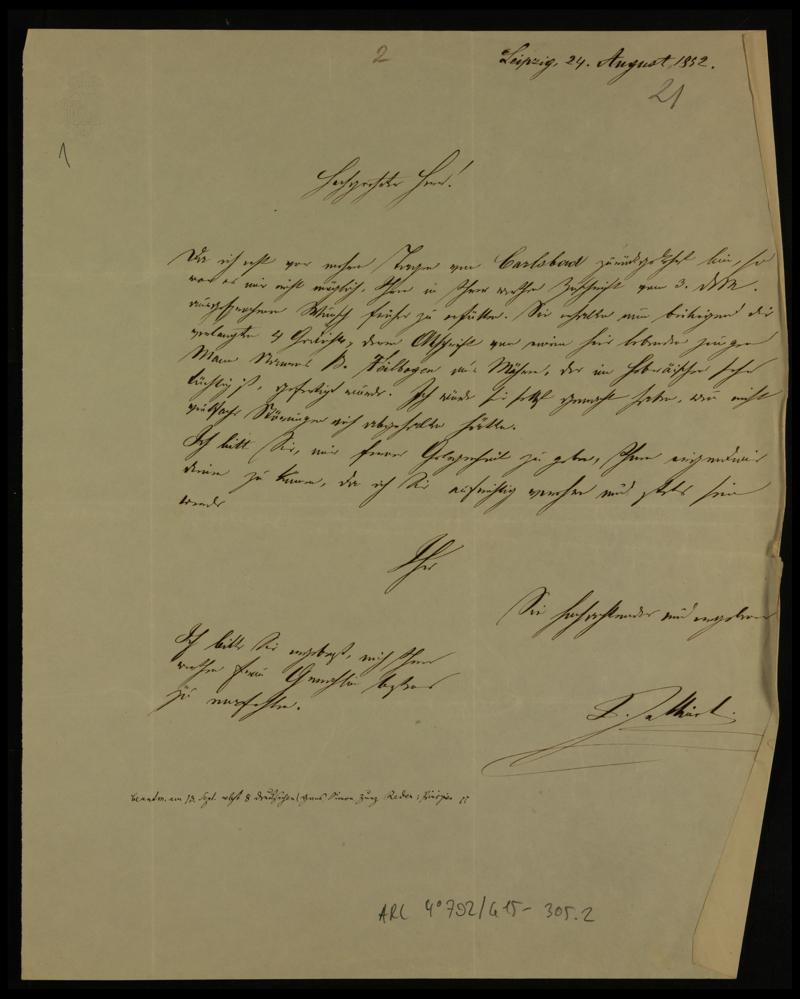 2
Leipzig, 24. August 1852.
21
1
Hochgeehrter Herr!
Da ich erst vor mehren Tagen von Carlsbad zurückgekehrt bin, so
war es mir nicht möglich, Ihren in Ihrer werthen Zuschrift vom 3. d. M.
ausgesprochenen Wunsch früher zu erfüllen. Sie erhalten nun beiliegend die
verlangten 4 Gedichte, deren Abschrift von einem hier lebenden jungen
Mann Namens B. Heilbogen aus Mähren, der im Hebräischen sehr
tüchtig ist, gefertigt wurde. Ich würde sie selbst gemacht haben, wenn nicht
vielfache Störungen mich abgehalten hätten.
Ich bitte Sie, mir ferner Gelegenheit zu geben, Ihnen irgendwie
dienen zu können, da ich Sie aufrichtig verehre und stets sein
werde
Ihr
Sie hochachtender und ergebener
Ich bitte Sie ergebenst, mich Ihrer
werthen Frau Gemahlin bestens
zu empfehlen.
Beantw. am 13. Sept. nebst 8
ARC 4° 792/G15-305.2